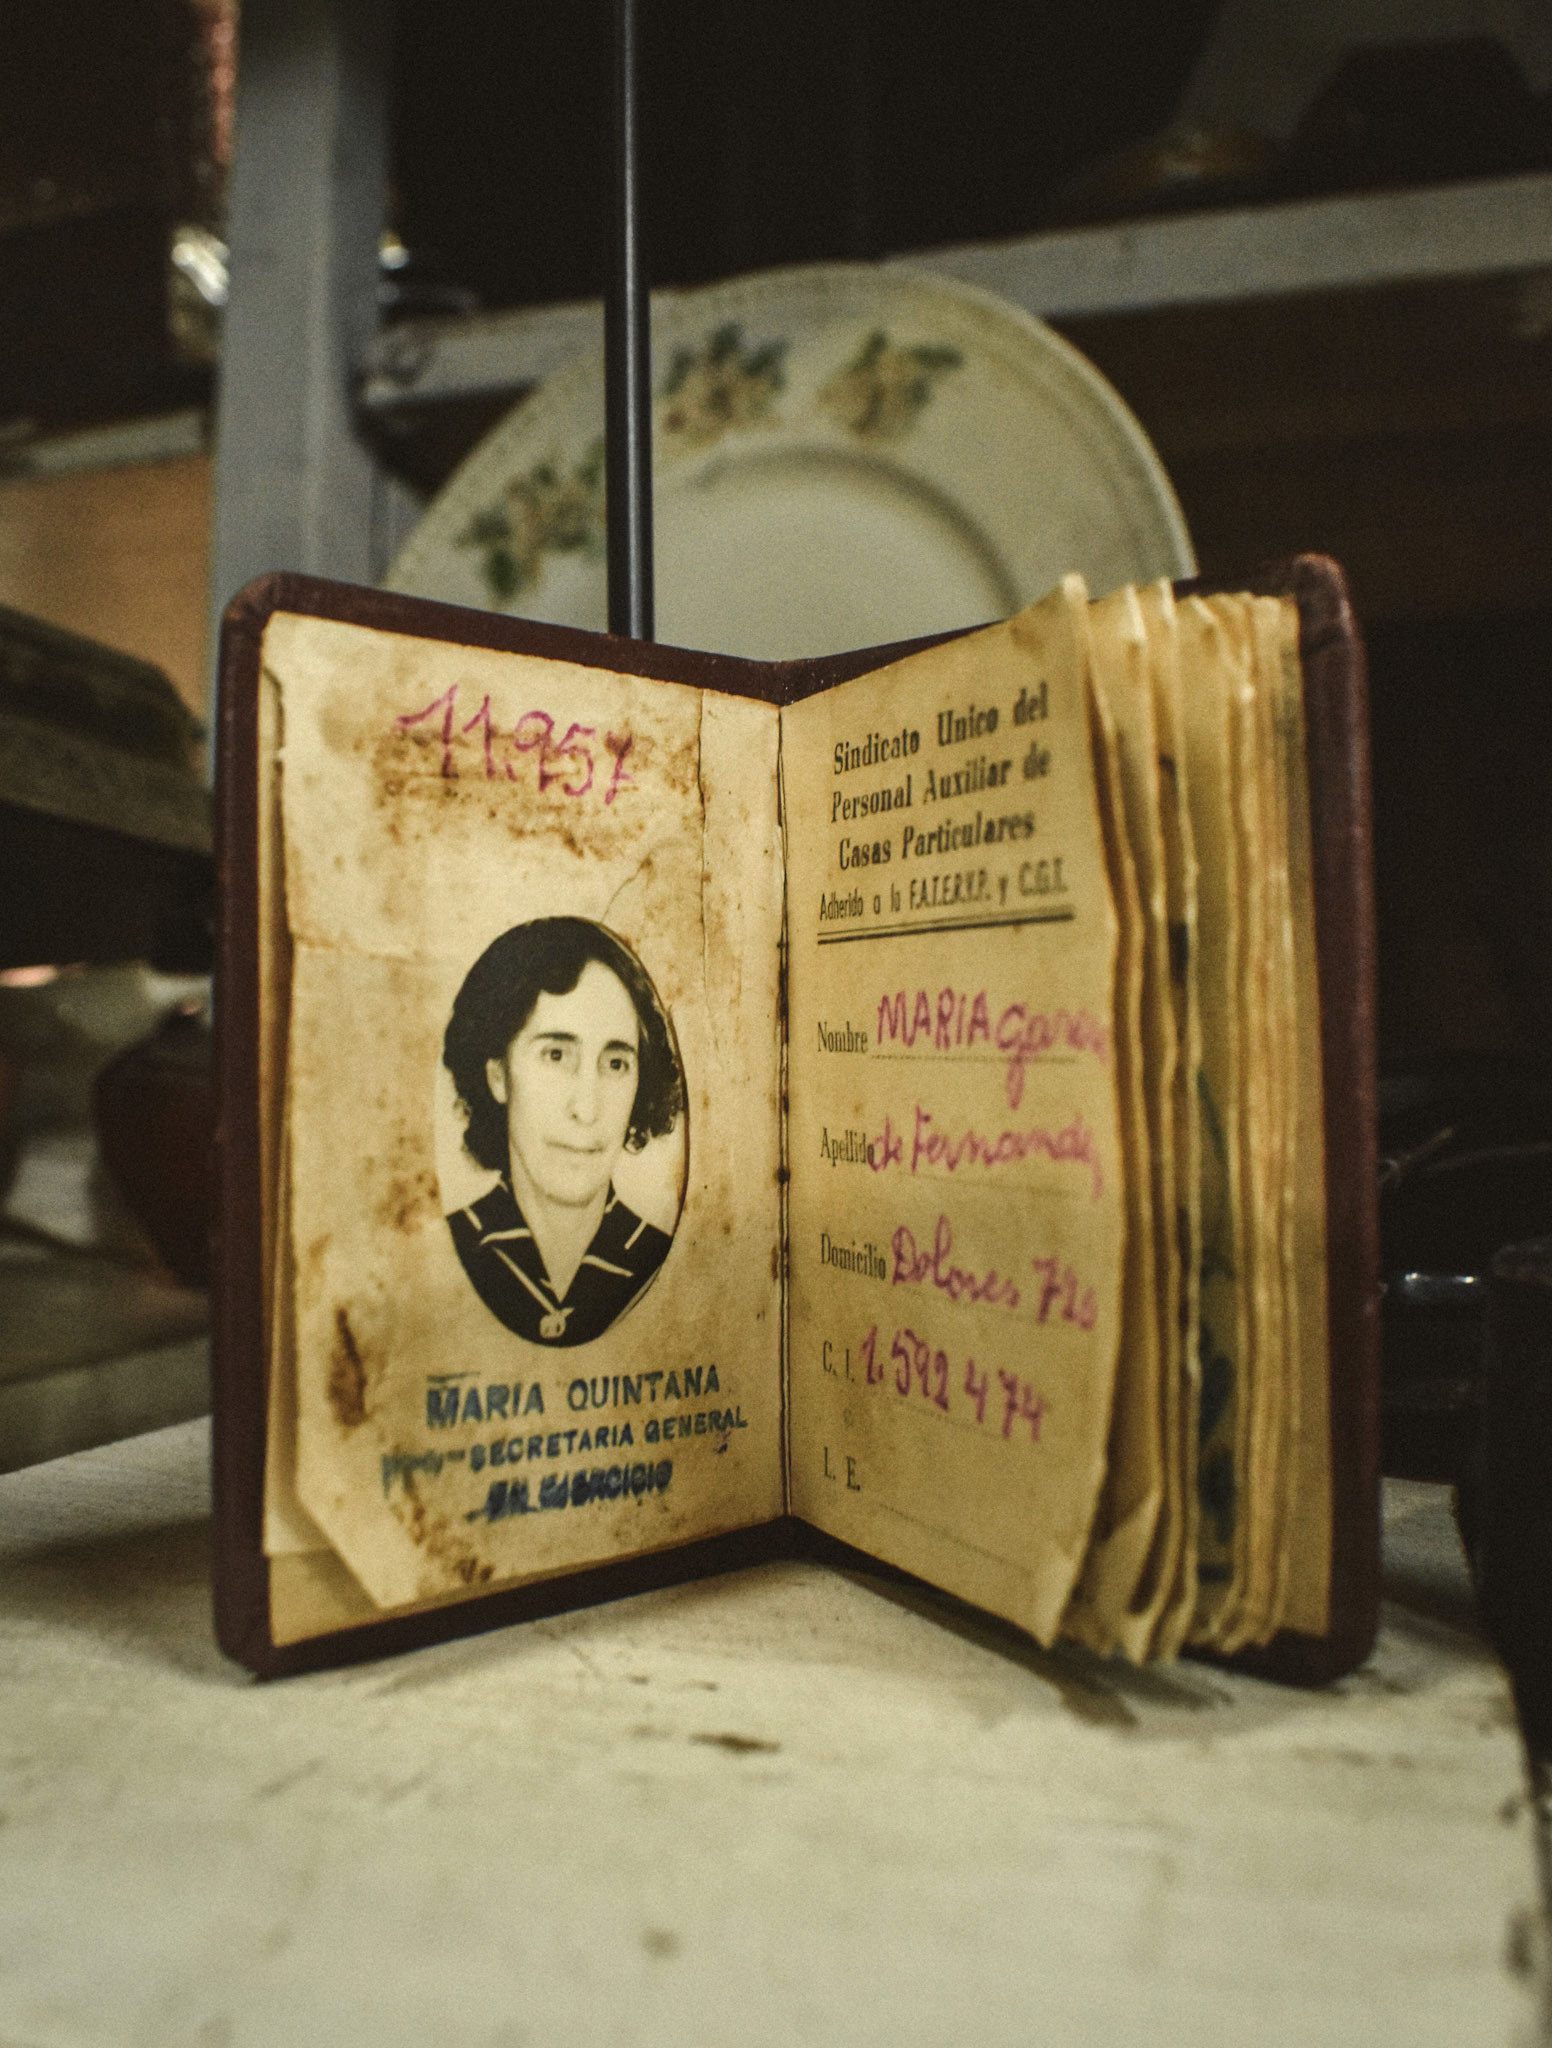 11.957
MARIA QUINTANA
SECRETARIA GENERAL
EN EJERCICIO
Sindicato Unico del
Personal Auxiliar de
Casas Particulares
Adherido a la F.A.T.E.R.Y.P. y C.G.T.
Nombre MARIA
Apellido de Fernandez
Domicilio Dolores
C. I. 1.592474
L. E.